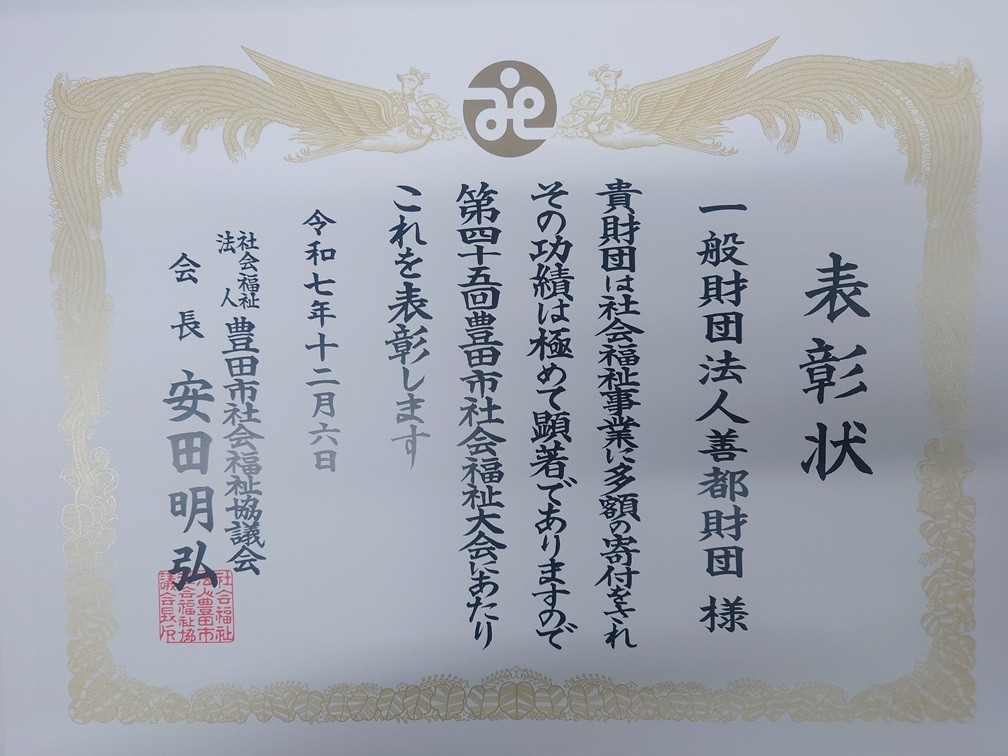 表彰状
一般財団法人善都財団 様
貴財団は社会福祉事業に多額の寄付をされ
その功績は極めて顕著でありますので
第四十五回豊田市社会福祉大会にあたり
これを表彰します
令和七年十二月六日
社会福祉法人 豊田市社会福祉協議会
会長 安田明弘
社会福祉
法人豊田市
社会福祉協
議会長之印